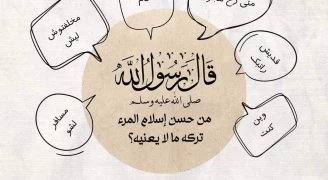 متى
مخلفتوش
ليش
قديش
راتبك
قال رسول الله
صلى الله عليه وسلم
من حسن إسلام المرء
تركه ما لا يعنيه؟
مسافر
لشو
وين
كنت